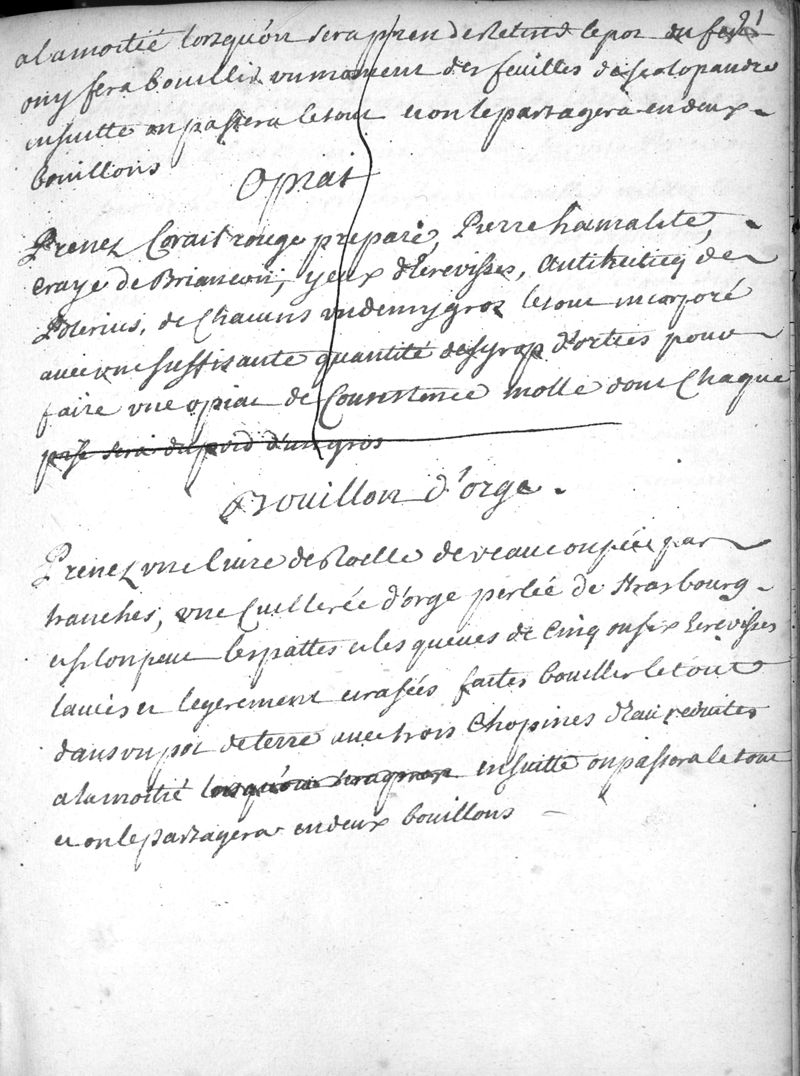 91
a la moitié lorsqu'on sera pren de Retiré le pot du feu
on y fera bouillir un moment des feuilles de scolopandre
ensuitte on passera le tout et on le partagera en deux
bouillons
Opiat
Prenez Corail rouge preparé, Pierre hamatite,
craye de Briancon, yeux d'Ecrevisses, Antihecticq de
Poterius, de Chacuns un demy gros le tout incorporé
avec une suffisante quantité de syrop d'orties pour
faire une opiat de Consistence molle dont Chaque
prise sera du poid d'un gros
Bouillon d'orge.
Prenez une livre de Roelle de veau coupée par
tranches, une Cuillerée d'orge perlée de Strasbourg
et si lon peut les pattes et les queues de cinq ou six Ecrevisses
lavées et legerement ecrasées faites bouillir le tout
dans un pot de terre avec trois Chopines d'eau reduites
a la moitié ensuitte on passera le tout
et on le partagera en deux bouillons